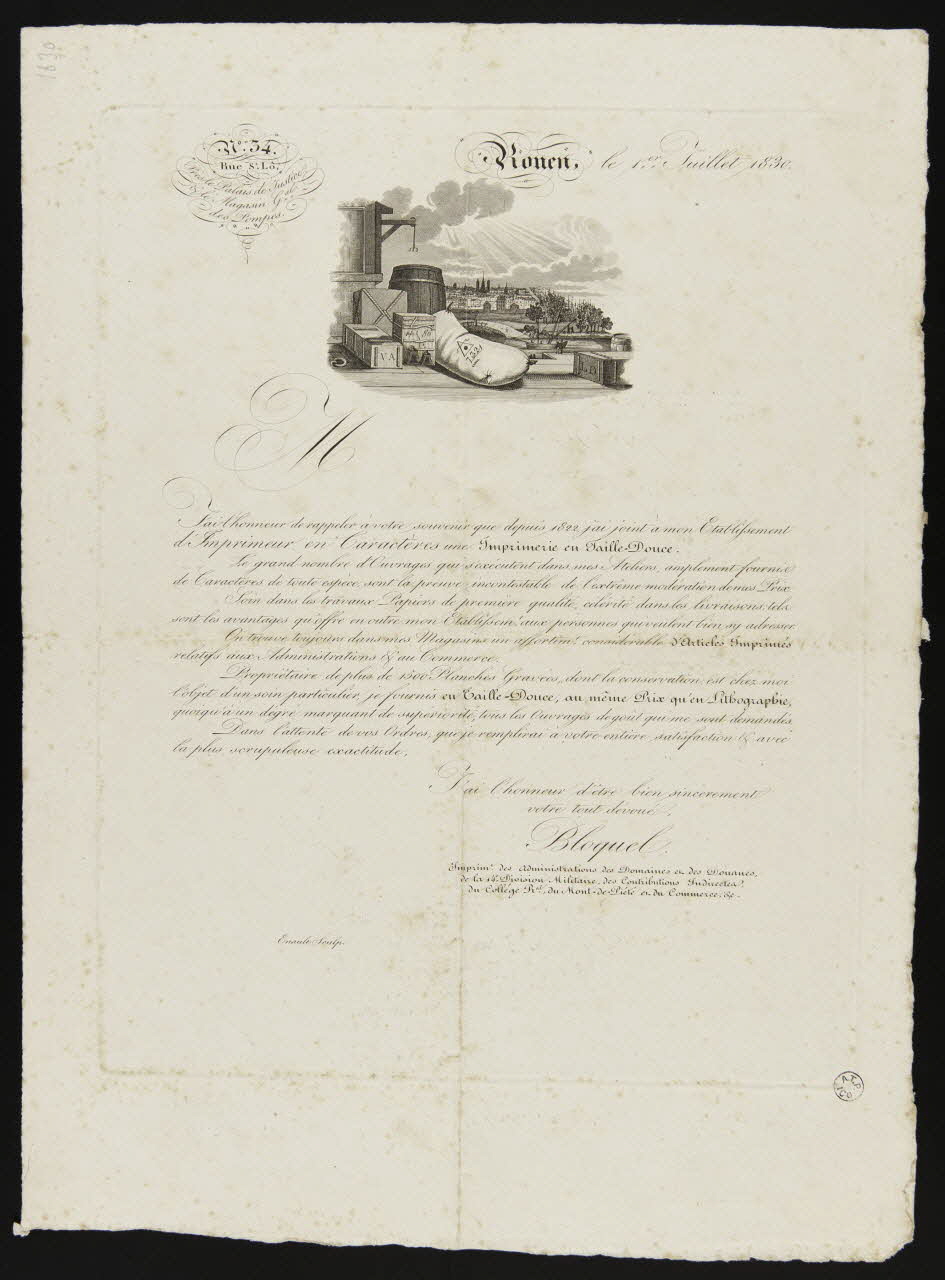 1830
N.º 34.
Rue St. Lô,
Près le Palais de Justice
& le Magasin G.al
des Pompes.
Rouen, le 1.er Juillet 1830.
VA
1321
L.D
M
J'ai l'honneur de rappeler à votre souvenir que depuis 1822, j'ai joint à mon Etablissement
d'Imprimeur en Caractères une Imprimerie en Taille-Douce.
Le grand nombre d'Ouvrages qui s'exécutent dans mes Ateliers, amplement fournis
de Caractères de toute espèce, sont la preuve incontestable de l'extrême modération de mes Prix
Soin dans les travaux Papiers de première qualité, célérité dans les livraisons; tels
sont les avantages qu'offre en outre mon Etablissem.t aux personnes qui veulent bien s'y adresser
On trouve toujours dans mes Magasins un assortim.t considérable d'Articles Imprimés
relatifs aux Administrations & au Commerce.
Propriétaire de plus de 1500 Planches Gravées, dont la conservation est chez moi
l'objet d'un soin particulier, je fournis en Taille-Douce, au même Prix qu'en Lithographie,
quoiqu'à un dégré marquant de supériorité, tous les Ouvrages de goût qui me sont demandés
Dans l'attente de vos Ordres, que je remplirai à votre entière satisfaction & avec
la plus scrupuleuse exactitude,
J'ai l'honneur d'être bien sincèrement
votre tout dévoué,
Bloquel.
Imprim.r des Administrations des Domaines et des Douanes,
de la 14.e Division Militaire, des Contributions Indirectes,
du Collége R.al, du Mont-de-Piété et du Commerce, &c.
Enault Sculp.
A.T.P